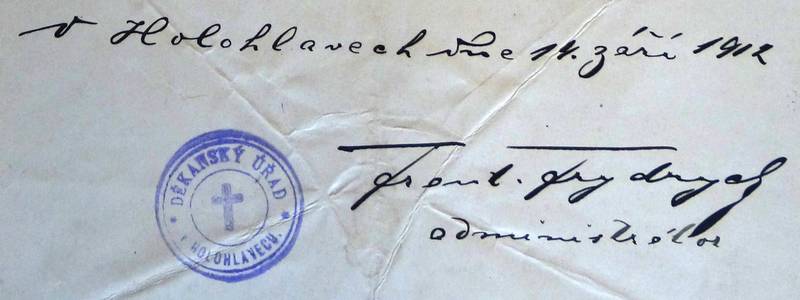 v Holohlavech dne 14. září 1912
DĚKANSKÝ ÚŘAD
HOLOHLAVECH.
Frant. Frydrych
administrátor